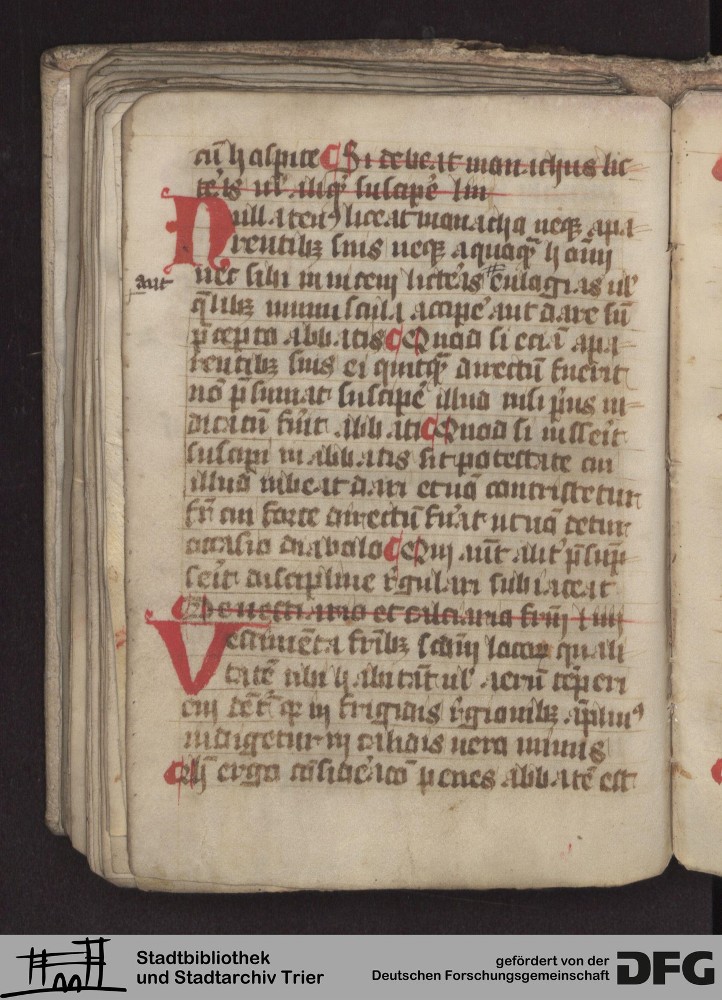 cū hospite Si debeat monachus lic
te͛is ul̓ aliqͥd suscipe͛ liiii
Nullaten⁹ liceat monacho neqꝫ a pa
rentibꝫ suis neqꝫ a quoqͣ hoīm
nec sibi inuicem licte͛is eulogias ul̓
aut
qͣlibꝫ munuscula accipe͛ aut dare sin̄
p̄cepto abbatis Quod si eciā a pa
rentibꝫ suis ei quitqͣ directū fuerit
nō p̄sumat suscipe͛ illud nisi pͥus in
dicatū fu͛it abbati Quod si iusse͛it
suscipi in abbatis sit potestate cui
illud iubeat dari et nō contristetur
fr̄ cui forte directū fu͛at ut nō detur
occasio diabolo Qui aūt alit͛ p̄sūp
se͛it discipline r̄gulari subiaceat
De uestiario et calciario frm̄ lv
Vestimēta fr̄ibꝫ scdm̄ locoꝝ quali
tatē ubi habitāt ul̓ aerū tēperi
em dēt͛ qꝛ in frigidis r̄gionibꝫ ap̄liu⁹
indigetur in calidis uero minus
Hꝭ ergo cōside͛acō penes abbatē est
Stadtbibliothek
und Stadtarchiv Trier
gefördert von der
Deutschen Forschungsgemeinschaft
DFG